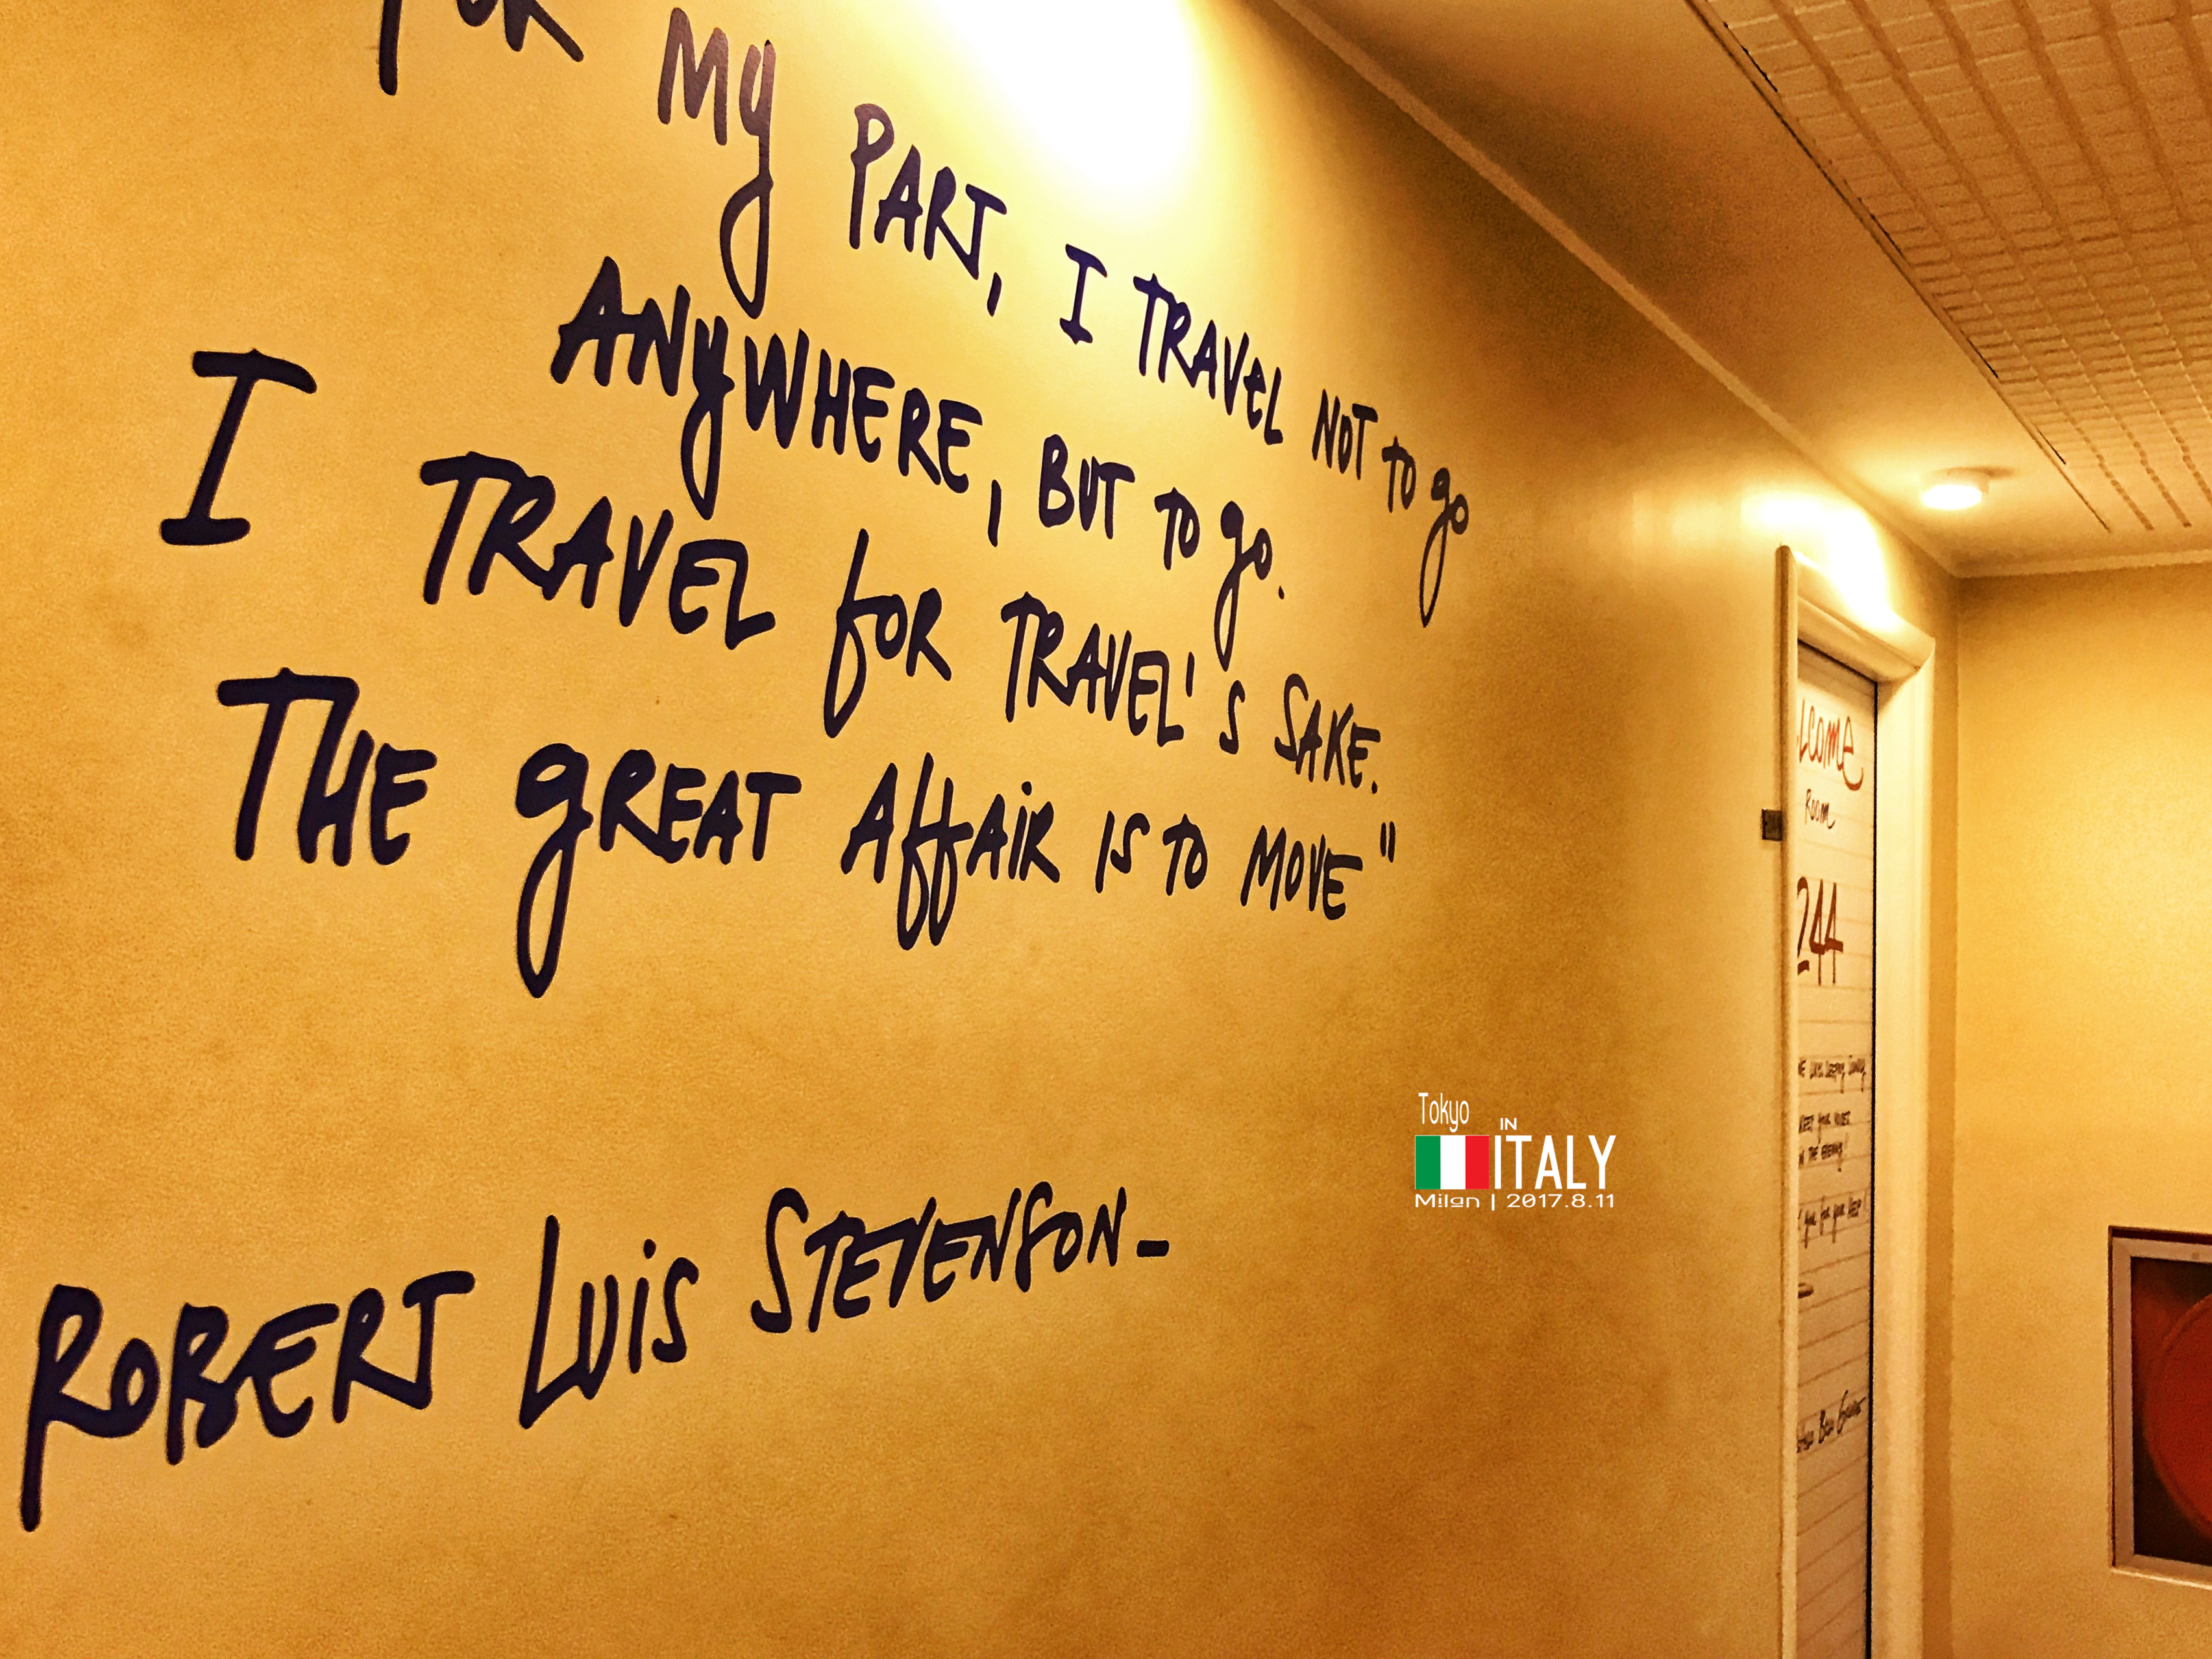 FOR MY PART, I TRAVEL NOT TO GO
ANYWHERE, BUT TO GO.
I TRAVEL FOR TRAVEL'S SAKE.
THE GREAT AFFAIR IS TO MOVE"
ROBERT LUIS STEVENSON-
Tokyo
IN
ITALY
Milan | 2017.8.11
lcome
Room
244
KEEP YOUR
THE
for your